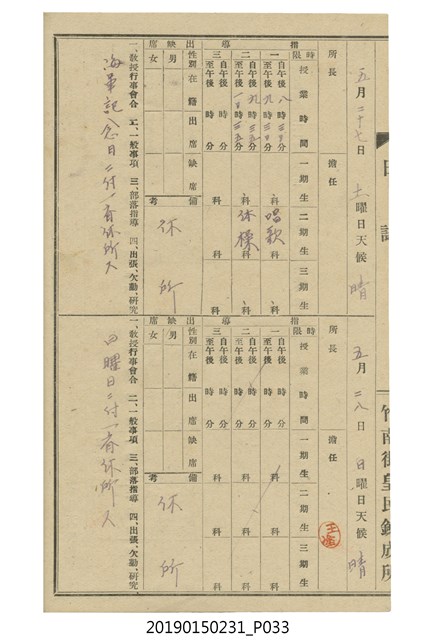 日誌
五月二十七日 土曜日 天候 晴
所長 擔任
指導
時限 授業時間 一期生 二期生 三期生
一 自午後八時三〇分 至午後九時三〇分 科 唱歌 科 科
二 自午後九時三五分 至午後一〇時三五分 科 体操 科 科
三 自午後 時 分 至午後 時 分 科 科 科
出缺席
性別 在籍 出席 缺席 備考
男
女
休所
一、教授行事會合 二、一般事項 三、部落指導 四、出張、欠勤、研究
海軍記念日ニ付一斉休所ス
竹南街皇民鍊成所
五月二八日 日曜日 天候 晴
所長 擔任
指導
時限 授業時間 一期生 二期生 三期生
一 自午後 時 分 至午後 時 分 科 科 科
二 自午後 時 分 至午後 時 分 科 科 科
三 自午後 時 分 至午後 時 分 科 科 科
出缺席
性別 在籍 出席 缺席 備考
男
女
休所
一、教授行事會合 二、一般事項 三、部落指導 四、出張、欠勤、研究
曜日ニ付一斉休所ス
20190150231_P033